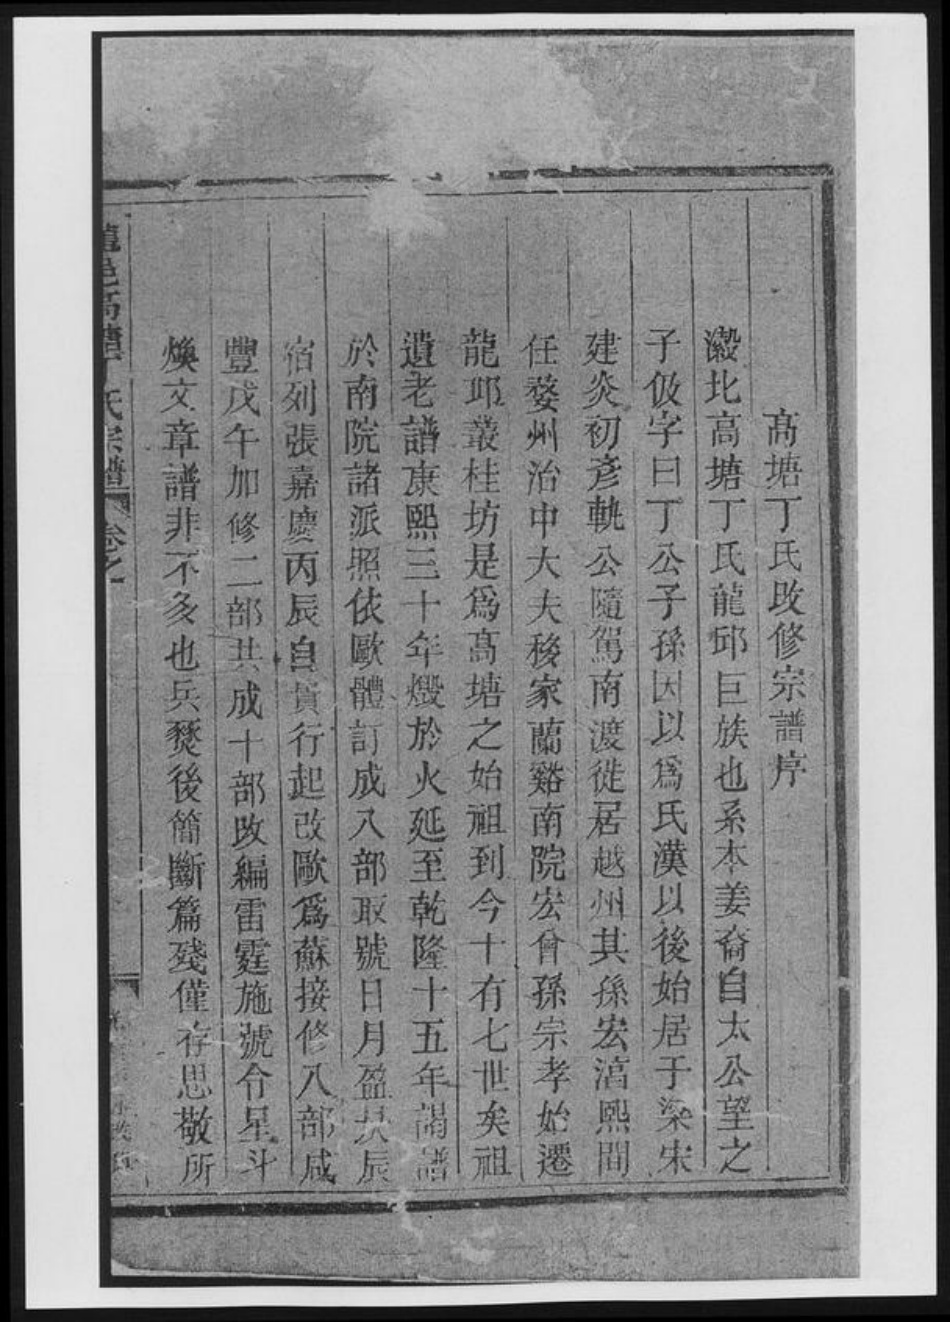 高塘丁氏改修宗譜序
瀫北高塘丁氏龍邱巨族也系本姜裔自太公望之
子伋字曰丁公子孫因以爲氏漢以後始居于梁宋
建炎初彥軌公隨駕南渡徙居越州其孫宏湻熙間
任婺州治中大夫移家蘭谿南院宏曾孫宗孝始遷
龍邱叢桂坊是爲高塘之始祖到今十有七世矣祖
遺老譜康熙三十年燬於火延至乾隆十五年謁譜
於南院諸派照依歐體訂成八部取號日月盈昃辰
宿列張嘉慶丙辰自貴行起改歐爲蘇接修八部咸
豐戊午加修二部共成十部改編雷霆施號令星斗
煥文章譜非不多也兵燹後簡斷篇殘僅存思敬所
龍邑高塘丁氏宗譜 卷之一